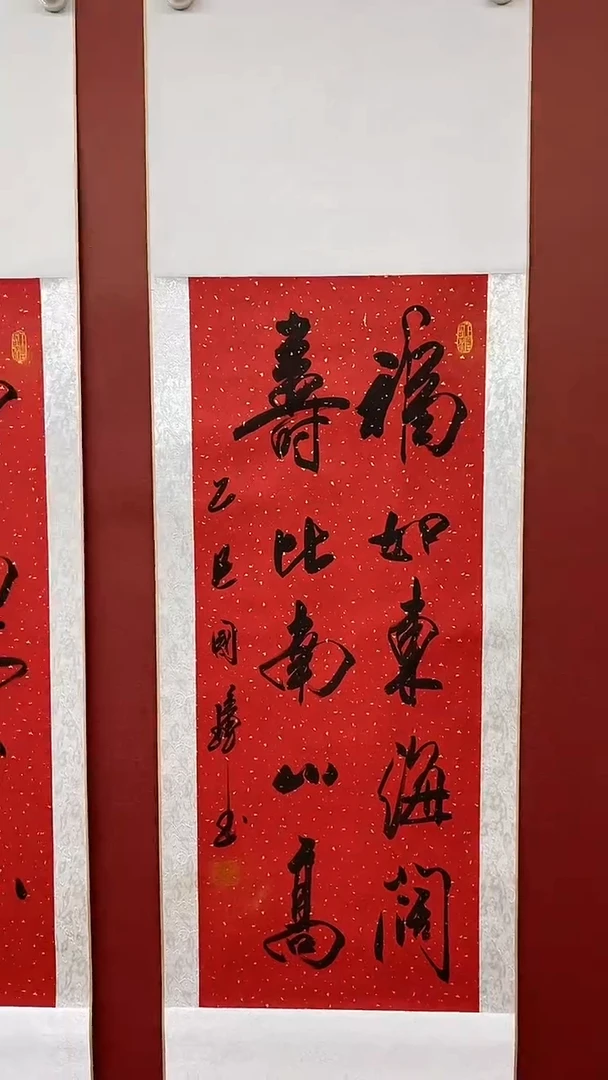 福如東海闊
壽比南山高
乙巳國